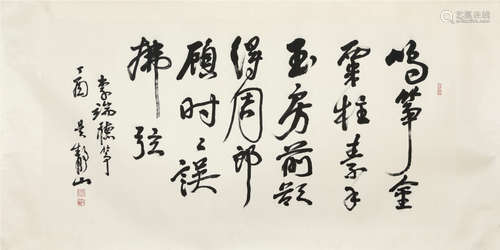 鸣筝金
粟柱素手
玉房前欲
得周郎
顾时々误
拂弦
李端听筝
丁酉 吴静山